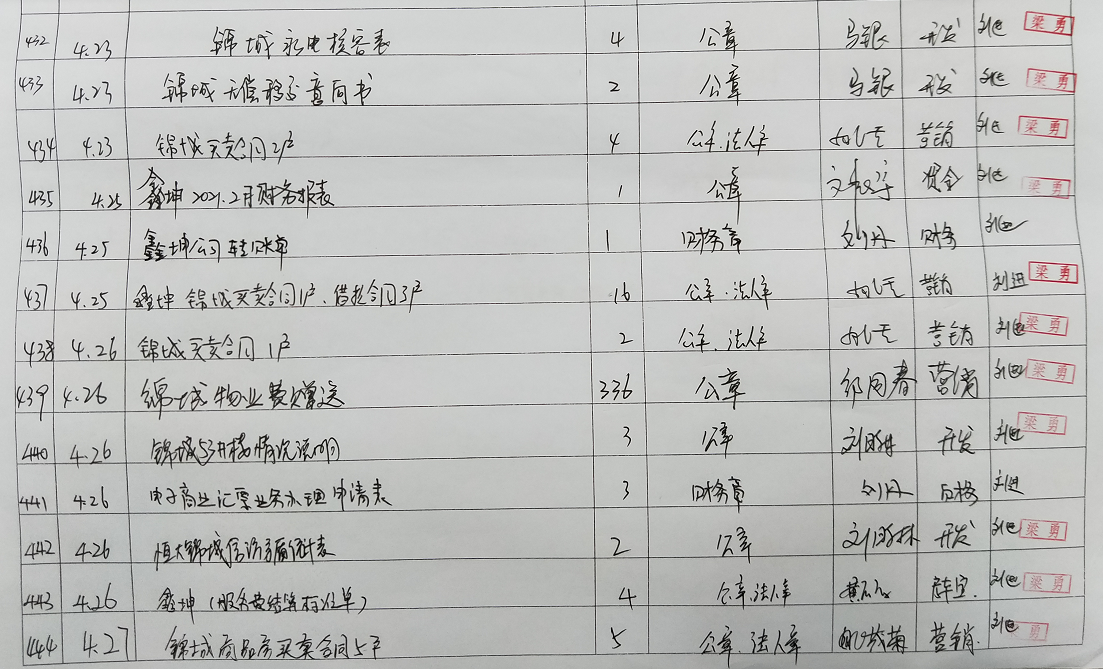 432 4.23 锦城永电核容表 4 公章 马银 开发 刘进 梁勇
433 4.23 锦城无偿移交意向书 2 公章 马银 开发 刘进 梁勇
434 4.23 锦城买卖合同2户 4 公章.法人章 营销 刘进 梁勇
435 4.25 鑫坤2021.2月财务报表 1 公章 资金 刘进 梁勇
436 4.25 鑫坤公司转账单 1 财务章 刘丹 财务 刘进
437 4.25 鑫坤 锦城买卖合同1户、借款合同3户 16 公章.法人章 营销 刘进 梁勇
438 4.26 锦城买卖合同1户 2 公章.法人章 营销 刘进 梁勇
439 4.26 锦城物业费赠送 336 公章 邹同春 营销 刘进 梁勇
440 4.26 锦城53#楼情况说明 3 公章 开发 刘进 梁勇
441 4.26 电子商业汇票业务办理申请表 3 财务章 刘丹 财务 刘进
442 4.26 恒大锦城信访 统计表 2 公章 开发 刘进 梁勇
443 4.26 鑫坤(服务费结算标准单) 4 公章.法人章 刘进 梁勇
444 4.27 锦城商品房买卖合同5户 5 公章.法人章 营销. 刘进 勇